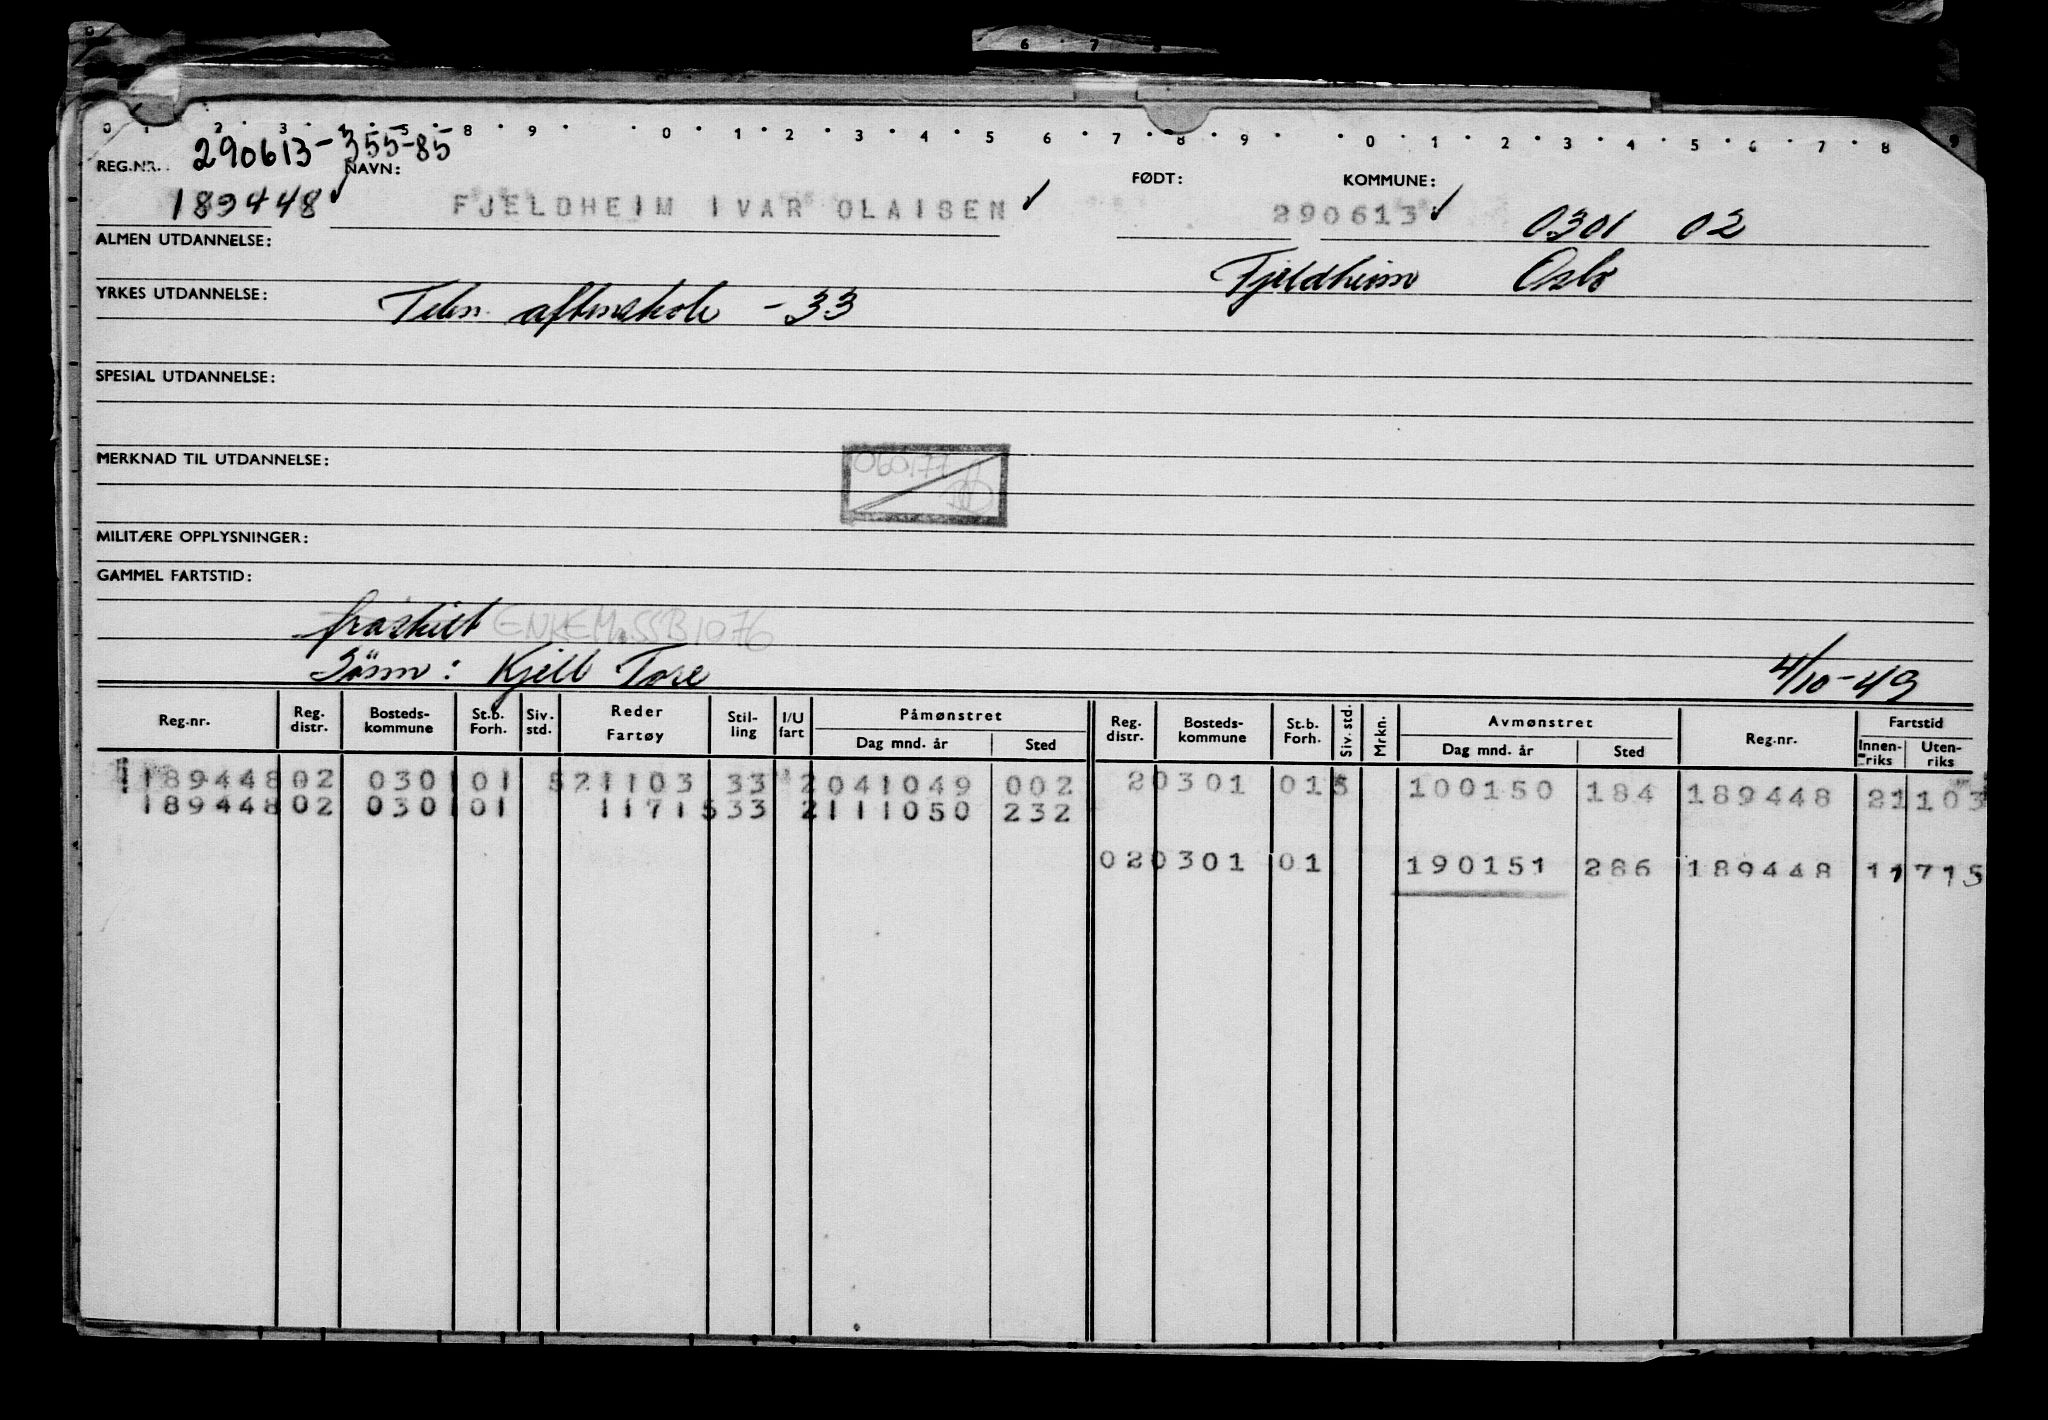 6 7 8
0 1 2 3 4 5 8 9 0 1 2 3 4 5 6 7 8 9 0 1 2 3 4 5 6 7 8 9
REG.NR. 290613-355-85 NAVN: FØDT: KOMMUNE:
189448 FJELDHEIM IVAR OLAISEN 290613 0301 02
ALMEN UTDANNELSE:
Fjeldheim Oslo
YRKES UTDANNELSE:
aftenskole -33
SPESIAL UTDANNELSE:
MERKNAD TIL UTDANNELSE: 060177
MILITÆRE OPPLYSNINGER:
GAMMEL FARTSTID:
fraskilt ENKEM. SSB 1076
Sönn: Kjell Tore 4/10-49
Reg.nr. Reg. distr. Bosteds-kommune St.b. Forh. Siv. std. Reder Fartøy Stil-ling I/U fart Påmønstret Dag mnd. år Sted Reg. distr. Bosteds-kommune St.b. Forh. Siv. std. Mrkn. Avmønstret Dag mnd. år Sted Reg.nr. Fartstid Innen-riks Uten-riks
189448 02 0301 01 5 21103 33 2 041049 002 2 0301 01 5 100150 184 189448 21103
189448 02 0301 01 11715 33 2 111050 232
02 0301 01 190151 286 189448 11715